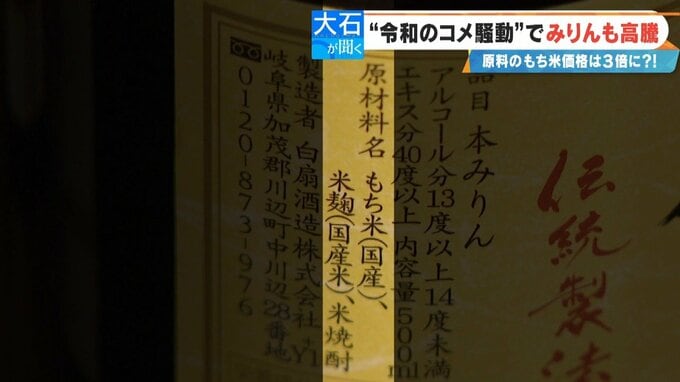 大石が聞く
“令和のコメ騒動”でみりんも高騰
原料のもち米価格は3倍に?!
伝統製法
品目 本みりん
アルコール分13度以上14度未満
エキス分40度以上 内容量500ml
原材料名 もち米(国産)、
米麹(国産米)、米焼酎
製造者 白扇酒造株式会社+Y1
岐阜県加茂郡川辺町中川辺28番地
0120-873-976